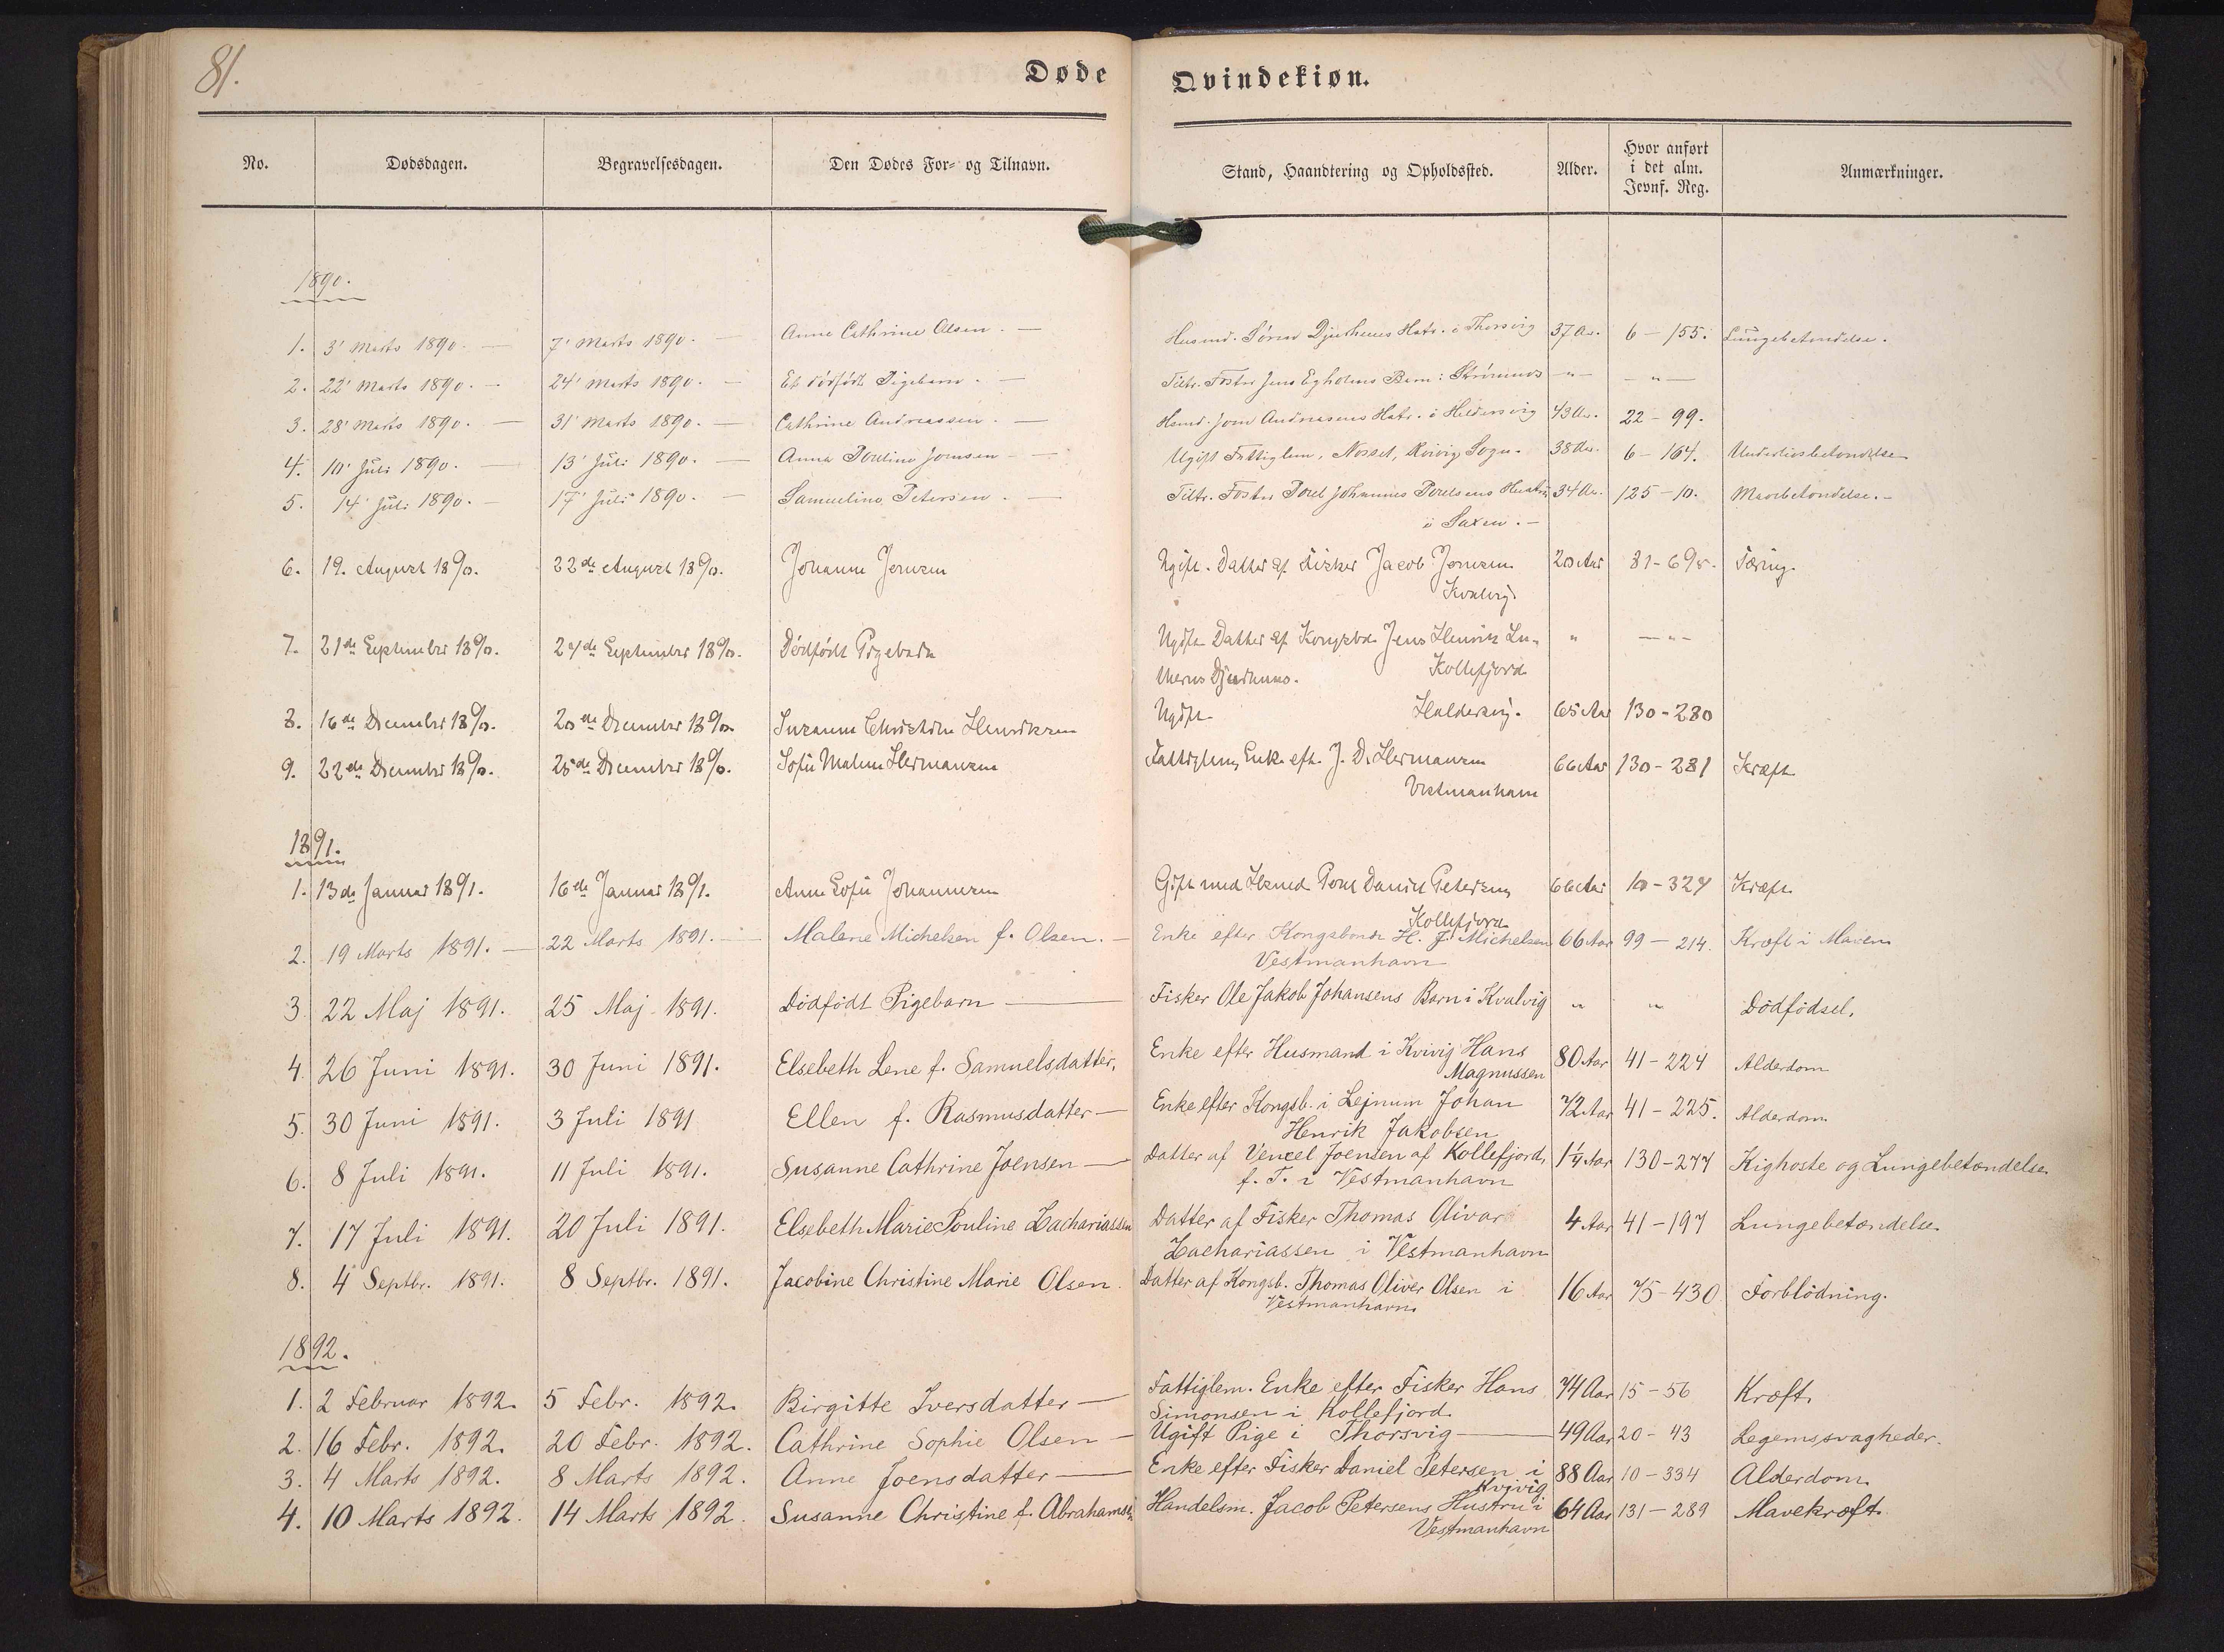 81.
Døde
Qvindekiøn.
No. Dødsdagen. Begravelsesdagen. Den Dødes For- og Tilnavn. Stand, Haandtering og Opholdssted. Alder. Hvor anført i det alm. Jevnf. Reg. Anmærkninger.
1890.
1. 3' Marts 1890. — 7' Marts 1890. — Anne Cathrine Olsen. — Husmd. Sören Djurhuus Hstr. i Thorsvig 37 Aar. 6 – 155. Lungebetændelse.
2. 22' Marts 1890. — 24' Marts 1890. — Et dødfødt Pigebarn. — Tiltr. Fæster Jens Egholms Barn i Strömnæs — " — — " —
3. 28' Marts 1890. — 31' Marts 1890. — Cathrine Andreassen. — Hsmd. Joen Andreasens Hstr. i Haldersvig 43 Aar. 22 – 99.
4. 10' Juli 1890. 13' Juli 1890. — Anna Pouline Joensen — Ugift Fattiglem, Kvivig Sogn. 38 Aar. 6 – 164. Underlivsbetændelse
5. 14' Juli 1890. — 17' Juli 1890. — Samueline Petersen. — Tiltr. Fæster Poul Johannes Poulsens Hustru 34 Aar. 125 – 10. Mavebetændelse. —
i Saxen. —
6. 19. August 1890. 22de August 1890. Johanne Joensen Ugift. Datter af Fisker Jacob Joensen 20 Aar 81 – 695. Tæring.
Kvalvig
7. 21de September 1890. 24de September 1890. Dödfödt Pigebarn Ugift Datter af Kongsbd. Jens Henrik Lu- " — " —
therus Djurhuus. Kollefjord
8. 16de December 1890. 20de December 1890. Susanne Christine Henriksen Ugift Haldersvig. 65 Aar 130 – 280
9. 22de December 1890. 25de December 1890. Sofie Malene Hermansen Fattiglem, Enke eft. J. D. Hermansen 66 Aar 130 – 281 Kræft
Vestmanhavn
1891.
1. 13de Januar 1891. 16de Januar 1891. Anne Sofie Johannesen Gift med Hsmd Poul Daniel Petersen, 66 Aar 10 – 324 Kræft.
Kollefjord
2. 19 Marts 1891. — 22 Marts 1891. — Malene Michelsen f. Olsen. — Enke efter Kongsbonde H. J. Michelsen 66 Aar 99 – 214. Kræft i Maven
Vestmanhavn
3. 22 Maj 1891. 25 Maj 1891. Dödfödt Pigebarn — Fisker Ole Jakob Johansens Barn i Kvalvig " " Dödfödsel.
4. 26 Juni 1891. 30 Juni 1891. Elsebeth Lene f. Samuelsdatter, Enke efter Husmand i Kvivig Hans 80 Aar 41 – 224 Alderdom
Magnussen
5. 30 Juni 1891. 3 Juli 1891 Ellen f. Rasmusdatter — Enke efter Kongsb. i Lejnum Johan 72 Aar 41 – 225. Alderdom
Henrik Jakobsen
6. 8 Juli 1891. 11 Juli 1891. Susanne Cathrine Joensen — Datter af Vencel Joensen af Kollefjord, 1¼ Aar 130 – 277 Kighoste og Lungebetændelse
f. T. i Vestmanhavn
7. 17 Juli 1891. 20 Juli 1891. Elsebeth Marie Pouline Zachariassen Datter af Fisker Thomas Olivar 4 Aar 41 – 197 Lungebetændelse
Zachariassen i Vestmanhavn
8. 4 Septbr. 1891. 8 Septbr. 1891. Jacobine Christine Marie Olsen. Datter af Kongsb. Thomas Oliver Olsen i 16 Aar 75 – 430 Forblödning.
Vestmanhavn
1892.
1. 2 Februar 1892. 5 Febr. 1892. Birgitte Iversdatter — Fattiglem. Enke efter Fisker Hans 74 Aar 15 – 56 Kræft.
Simonsen i Kollefjord
2. 16 Febr. 1892. 20 Febr. 1892. Cathrine Sophie Olsen — Ugift Pige i Thorsvig — 49 Aar 20 – 43 Legemssvagheder.
3. 4 Marts 1892. 8 Marts 1892. Anne Joensdatter — Enke efter Fisker Daniel Petersen i 88 Aar 10 – 334 Alderdom
Kvivig
4. 10 Marts 1892. 14 Marts 1892. Susanne Christine f. Abrahamsd. Handelsm. Jacob Petersens Hustru i 64 Aar 131 – 289 Mavekræft.
Vestmanhavn